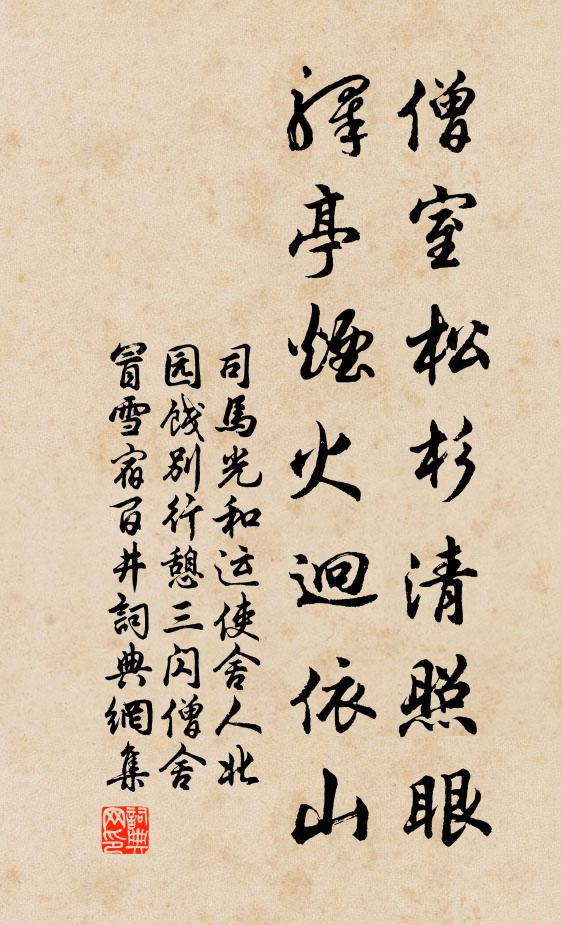 僧室松杉清照眼
驛亭煙火迥依山
司馬光和运使舍人北
园饯别行憩三闪僧舍
冒雪宿百井詞典網集
詞典
网印